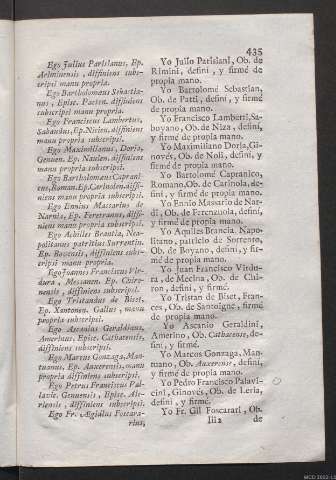 435
Ego Julius Parisianus, Ep.
Ariminensis, diffiniens sub-
scripsi manu propria.
Ego Bartholomæus Sebastia-
nus, Episc. Pacten. diffiniens
subscripsi manu propria.
Ego Franciscus Lambertus,
Sabaudus, Ep. Nicien. diffiniens
manu propria subscripsi.
Ego Maximilianus, Doria,
Genuen. Ep. Naulen. diffiniens
manu propria subscripsi.
Ego Bartholomæus Capran-
cus, Roman. Ep. Carinolen. diffi-
niens manu propria subscripsi.
Ego Ennius Massarius de
Narnia, Ep. Feretranus, diffi-
niens manu propria subscripsi.
Ego Achilles Brantia, Nea-
politanus patritius Surrentin.
Ep. Bovensis, diffiniens sub-
scripsi manu propria.
Ego Joannes Franciscus Vir-
dura, Messanen. Ep. Chiro-
nensis, diffiniens subscripsi.
Ego Tristandus de Biset,
Ep. Xantonen. Gallus, manu
propria subscripsi.
Ego Ascanius Geraldinus,
Amerinus, Episc. Cathacensis,
diffiniens subscripsi.
Ego Marcus Gonzaga, Man-
tuanus, Ep. Auxerensis, manu
propria diffiniens subscripsi.
Ego Petrus Franciscus Pal-
lavic. Genuensis, Episc. Ale-
riensis, diffiniens subscripsi.
Ego Fr. Ægidius Foscara-
rius,
Yo Julio Parisiani, Ob. de
Rimini, definí, y firmé de
propia mano.
Yo Bartolomé Sebastian,
Ob. de Patti, definí, y firmé
de propia mano.
Yo Francisco Lamberti, Sa-
boyano, Ob. de Niza, definí,
y firmé de propia mano.
Yo Maximiliano Doria, Gi-
novés, Ob. de Noli, definí, y
firmé de propia mano.
Yo Bartolomé Capranico,
Romano, Ob. de Carinola, de-
finí, y firmé de propia mano.
Yo Ennio Massario de Nar-
di, Ob. de Ferenzuola, definí,
y firmé de propia mano.
Yo Aquiles Brancia, Napo-
litano, patricio de Sorrento,
Ob. de Boyano, definí, y fir-
mé de propia mano.
Yo Juan Francisco Virdu-
ra, de Mecina, Ob. de Chi-
ron, definí, y firmé.
Yo Tristan de Biset, Fran-
ces, Ob. de Santoigne, firmé
de propia mano.
Yo Ascanio Geraldini,
Amerino, Ob. Cathacense, de-
finí, y firmé.
Yo Marcos Gonzaga, Man-
tuano, Ob. Auxerense, definí,
y firmé de propia mano.
Yo Pedro Francisco Palavi-
cini, Ginovés, Ob. de Leria,
definí, y firmé.
Yo Fr. Gil Foscarari, Ob.
Iii 2 de